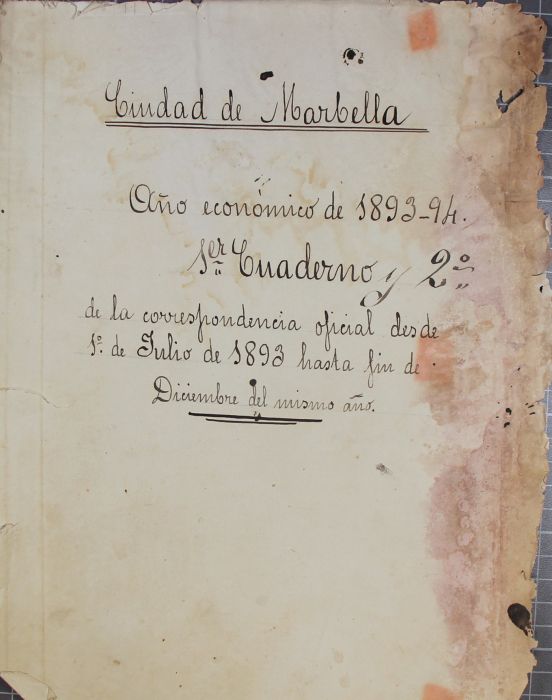 Ciudad de Marbella
Año económico de 1893-94.
1er Cuaderno y 2º
de la correspondencia oficial desde
1º de Julio de 1893 hasta fin de
Diciembre del mismo año.